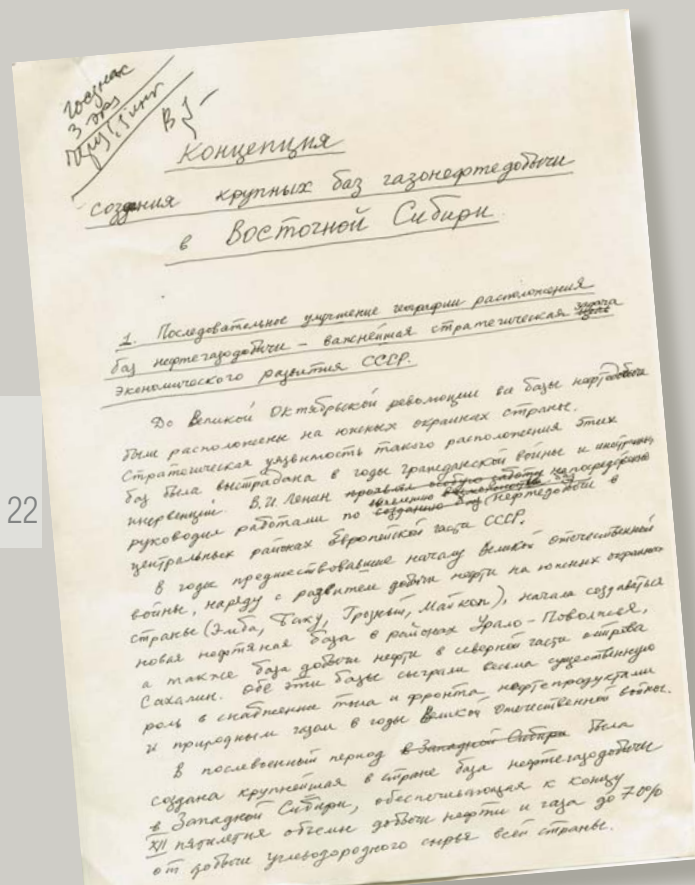 госзнак
3 экз
В 1
Концепция
создания крупных баз газонефтедобычи
в Восточной Сибири.
1. Последовательное улучшение географии расположения
баз нефтегазодобычи – важнейшая стратегическая задача
экономического развития СССР.
До Великой Октябрьской революции все базы нефтедобычи
были расположены на южных окраинах страны.
Стратегическая уязвимость такого расположения этих
баз была выстрадана в годы гражданской войны и иностранной
интервенции. В.И. Ленин проявлял особую заботу непосредственно
руководил работами по созданию баз нефтедобычи в
центральных районах Европейской части СССР.
В годы предшествовавшие началу Великой отечественной
войны, наряду с развитием добычи нефти на южных окраинах
страны (Эмба, Баку, Грозный, Майкоп), начала создаваться
новая нефтяная база в районах Урало-Поволжья,
а также база добычи нефти в северной части острова
Сахалин. Обе эти базы сыграли весьма существенную
роль в снабжении тыла и фронта нефтепродуктами
и природным газом в годы Великой Отечественной войны.
В послевоенный период в Западной Сибири была
создана крупнейшая в стране база нефтегазодобычи
в Западной Сибири, обеспечивающая к концу
XII пятилетия объемы добычи нефти и газа до 70%
от добычи углеводородного сырья всей страны.
22